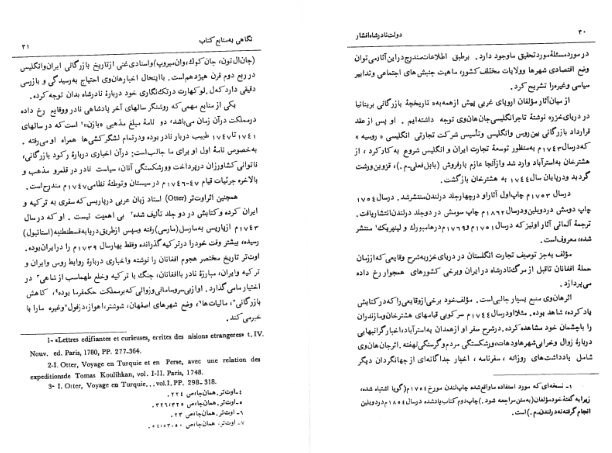 ۳۰ دولت نادرشاه افشار
در مورد مسئلهٔ مورد تحقیق ما وجود دارد. برطبق اطلاعات مندرج در این آثار می‌توان
وضع اقتصادی شهرها و ولایات مختلف کشور، ماهیت جنبش‌های اجتماعی و تدابیر
سیاسی وغیره را تشریح کرد.
از میان آثار مؤلفان اروپای غربی پیش از همه به «تاریخچهٔ بازرگانی بریتانیا
در دریای خزر» نوشتهٔ تاجر انگلیسی جان هان‌وی توجه داشته‌ایم. او پس از عقد
قرارداد بازرگانی بین روس وانگلیس وتأسیس شرکت تجارتی انگلیسی «روسیه»
که در سال ۱۷۴۳م به‌منظور توسعهٔ تجارت ایران و انگلیس شروع به کار کرد، از
هشترخان به استرآباد وارد شد و از آنجا عازم بارفروش (بابل فعلی ـ م.)، قزوین ورشت
گردید و در پایان سال ۱۷۴۴ به هشترخان بازگشت.
در سال ۱۷۵۳م چاپ اول آثار او در چهار جلد در لندن منتشر شد. در سال ۱۷۵۴
چاپ دومش در دوبلین و در سال ۱۷۶۲م چاپ سومش در دو جلد در لندن انتشار یافت.
ترجمهٔ آلمانی آثار او نیز که در سال ۱۷۵۱م و ۱۷۶۹م در هامبورگ و لیپزیک منتشر
شده، معروف است.
مؤلف به‌جز توصیف تجارت انگلستان در دریای خزر به شرح وقایعی که از زمان
حملهٔ افغانان تا قبل از مرگ نادرشاه در ایران و برخی کشورهای همجوار رخ داد
می‌پردازد.
اثر هان‌وی منبع بسیار جالبی است. مؤلف خود برخی از وقایعی را که در کتابش
یاد کرده، شاهد بوده. مثلا او در سال ۱۷۴۴م سرکوبی قیامهای هشترخان و مازندران
را با چشمان خود مشاهده کرده. در شرح سفر او از همدان به استرآباد، با اخبار گرانبهایی
دربارهٔ زوال و خرابی شهرها و دهات، ورشکستگی مردم و گرسنگی نهفته. اثر جان هان‌وی
شامل یادداشت‌های روزانه، سفرنامه، اخبار جداگانه‌ای از جهانگردان دیگر
۱ـ نسخه‌ای که مورد استفاده ما واقع شده چاپ لندن مورخ ۱۷۵۴م (گویا اشتباه شده،
زیرا به گفتهٔ خود مؤلفان (به متن مراجعه شود.) چاپ دوم کتاب یادشده در سال ۱۷۵۴م در دوبلین
انجام گرفته نه در لندن. م.) است.
نگاهی به منابع کتاب ۳۱
(جان التون، جان کوک، وان‌میروپ) واسنادی غنی از تاریخ بازرگانی ایران و انگلیس
در ربع دوم قرن هیژدهم است. با اینحال اخبار هان‌وی احتیاج به رسیدگی و بازرسی
دقیقی دارد که ل. لوکهارت در تک‌نگاری خود دربارهٔ نادرشاه بدان توجه کرده.
یکی از منابع مهمی که روشنگر سالهای آخر پادشاهی نادر و وقایع رخ داده
در مملکت در آن زمان می‌باشد؛ دو نامهٔ مبلغ مذهبی «بازن» است که در سالهای
۱۷۴۱ تا ۱۷۴۷ طبیب دربار نادر بوده و در تمام لشگرکشی‌ها همراه او می‌رفته.
به‌خصوص نامهٔ اول او برای ما جالب است: در آن اخباری دربارهٔ رکود بازرگانی،
ناتوانی کشاورزان در پرداخت و ورشکستگی آنان، سیاست نادر در قلمرو مذهب و
بالاخره جزئیات قیام ۴۷ـ۱۷۴۶م در سیستان و توطئهٔ نظامی ۱۷۴۷م مندرج است.
همچنین اثر اوت‌تر (Otter) استاد زبان عربی در پاریس که سفری به ترکیه و
ایران کرده و کتابش در دو جلد تألیف شده بی اهمیت نیست. او که در سال
۱۷۴۳م از پاریس به مارسل (مارسی) رفته و سپس از طریق دریا به قسطنطنیه (استانبول)
رسیده، بیشتر وقت خود را در ترکیه گذرانده و فقط بهار سال ۱۷۳۹م را در ایران بوده.
اوت‌تر تاریخ مختصر هجوم افغانان را نوشته و اخباری دربارهٔ روابط روس و ایران و
ترکیه و ایران، مبارزهٔ نادر با افغانان، جنگ با ترکیه و خلع طهماسب از شاهی در
اختیار ما می‌گذارد. او از بی‌سروسامانی و زوالی که بر مملکت حکمفرما بوده، کاهش
بازرگانی، مالیات‌ها و وضع شهرهای اصفهان، شوشتر، اهواز، دزفول وغیره ما را با
خبر می‌کند.
1- «Lettres edifiantes et curieuses, ecrites des nisions etrangeres» t. IV.
Nouv. ed. Paris, 1780, PP. 277-364.
2-I. Otter, Voyage en Turquie et en Perse, avec une relation des
expeditionsde Tomas Koulikhan, vol. I-II. Paris, 1748.
3- I. Otter, Voyage en Turquie,..vol.I, PP. 298-318.
۴ـ اوت‌تر، همان جا، ص ۲۲۴.
۵ـ اوت‌تر، همان جا، ص ۳۲۵، ۳۲۶.
۶ـ اوت‌تر، همان جا، ص ۲۳.
۷ـ اوت‌تر، همان جا، ص ۵۱، ۵۳، ۵۴.